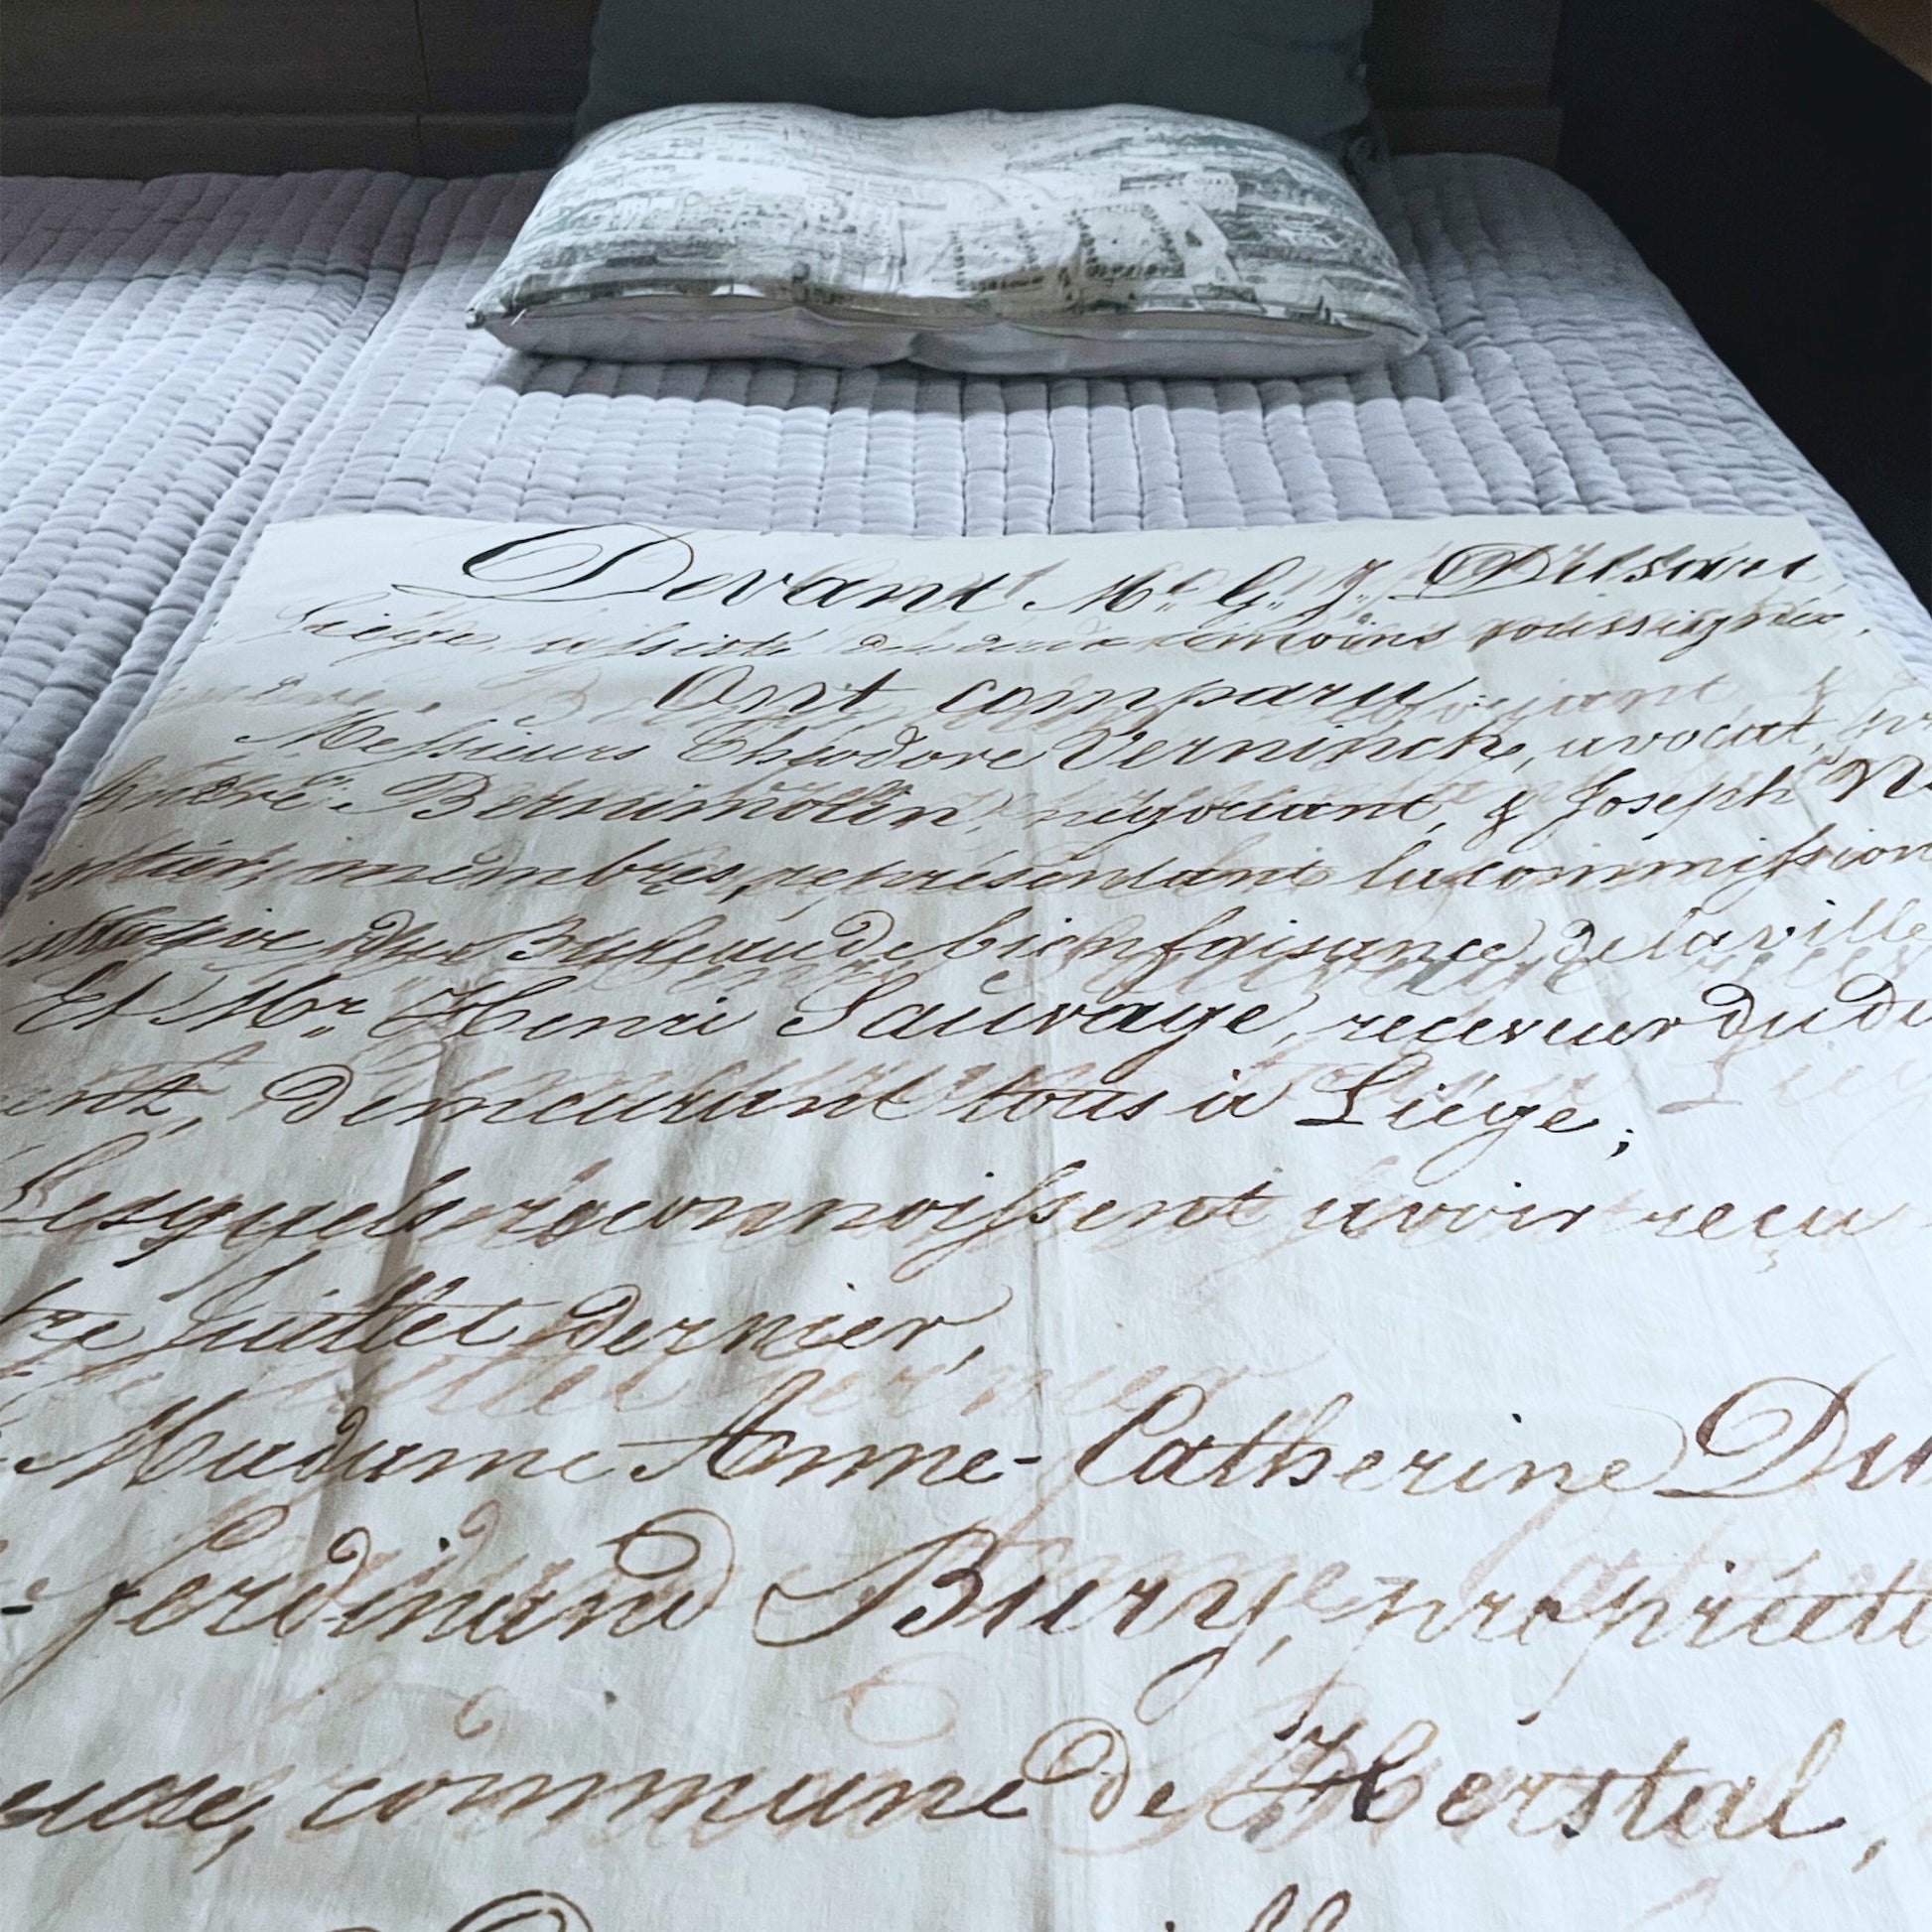 Devant Mr. G. J. Dusart
Liége, assisté des deux témoins soussignés,
Ont comparu:
Messieurs Théodore Verninck, avocat,
André Bernimolin, négociant, & Joseph
membres, représentant la commission
du Bureau de bienfaisance de la ville
Et Mr. Henri Sauvage, receveur du
demeurant tous à Liége;
Lesquels reconnoissent avoir reçu
Juillet dernier,
Madame Anne-Catherine Du
ferdinand Bury, propriéta
commune de Herstal,